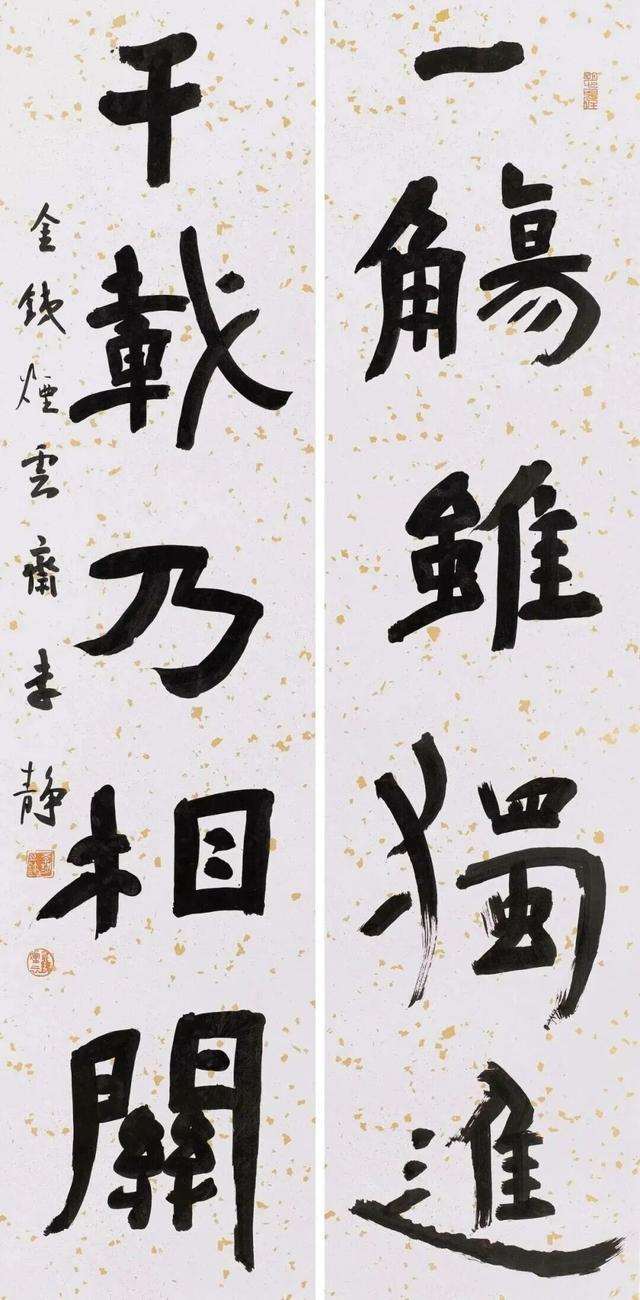 一觴雖獨進
千載乃相關
金 煙雲齋 静